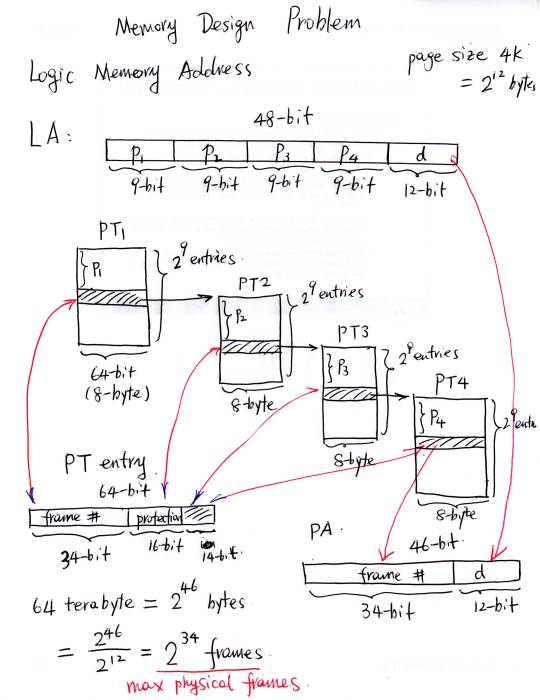 Memory Design Problem
Logic Memory Address
page size 4k
= 2^12 bytes
LA:
48-bit
P1 P2 P3 P4 d
9-bit 9-bit 9-bit 9-bit 12-bit
PT1
P1
2^9 entries.
64-bit
(8-byte)
PT2
P2
2^9 entries
8-byte
PT3
P3
2^9 entries
8-byte
PT4
P4
2^9 ente
8-byte
PT entry.
64-bit
frame # protection
34-bit 16-bit 14-bit.
PA.
46-bit.
frame # d
34-bit 12-bit
64 terabyte = 2^46 bytes
= 2^46 / 2^12 = 2^34 frames.
max physical frames.